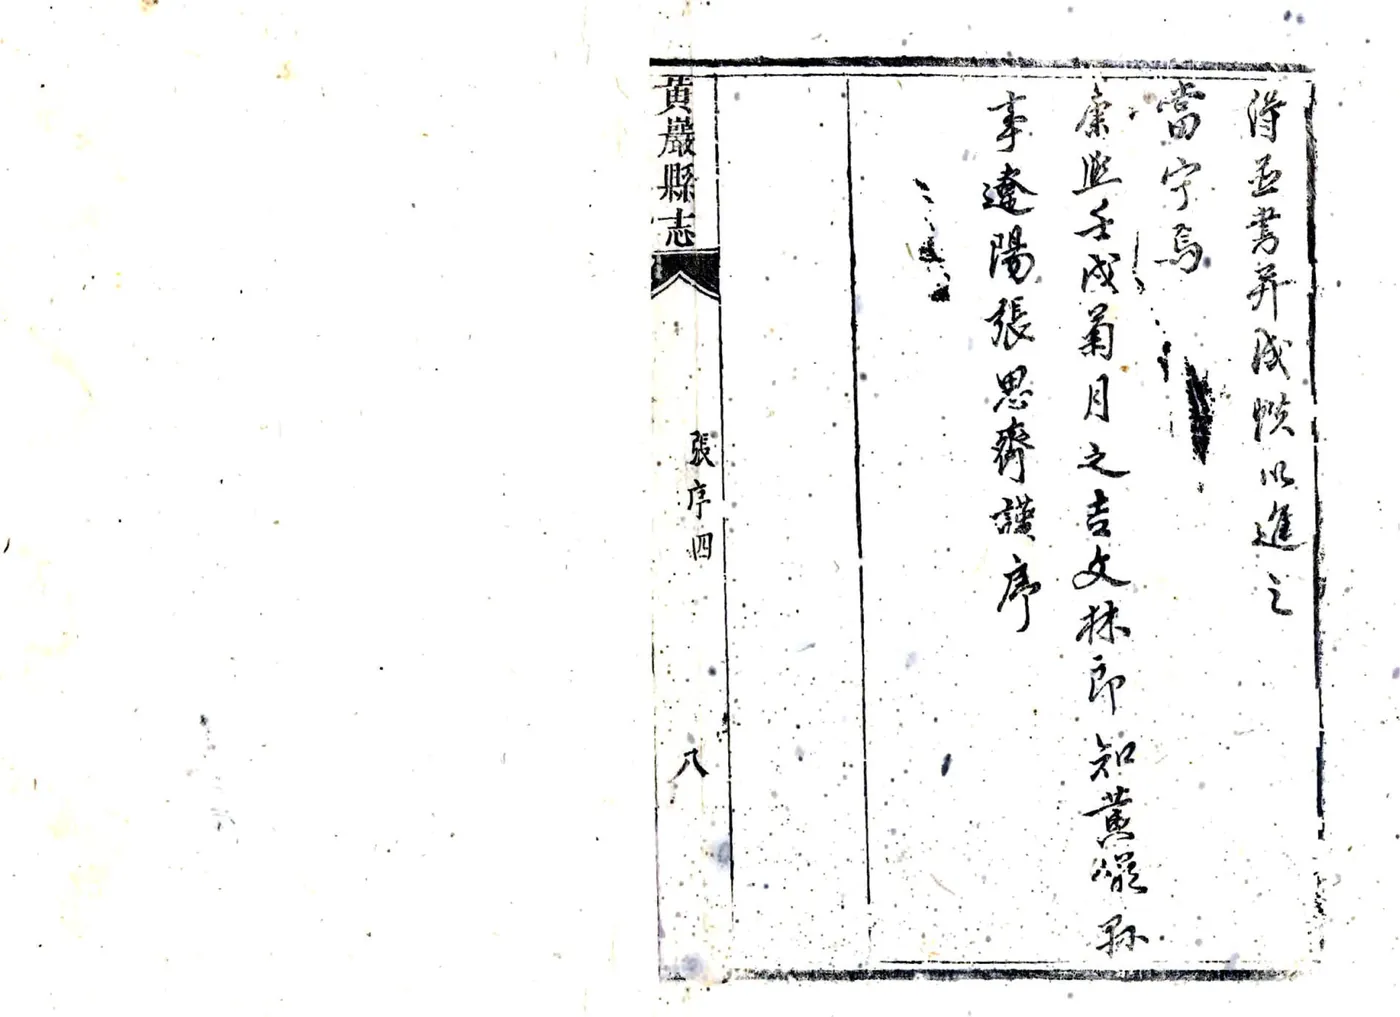 得並書并成帙以進之
當宁焉
康熙壬戌菊月之吉文林郎知黃巖縣
事遼陽張思齊謹序
黃巖縣志
張序四
八